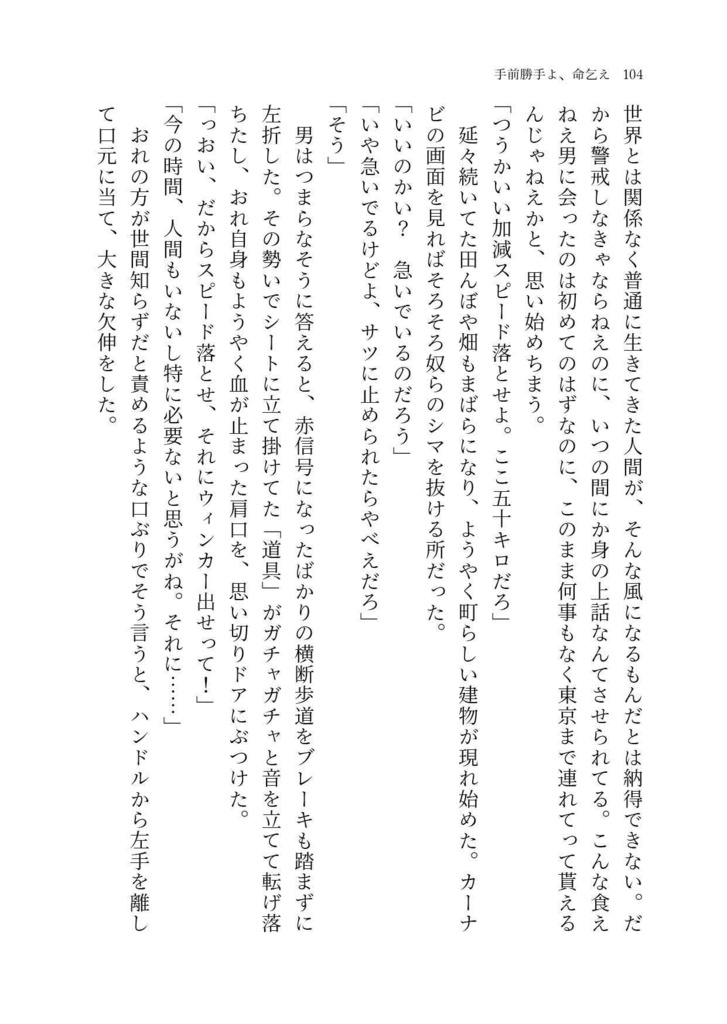 手前勝手よ、命乞え 104
世界とは関係なく普通に生きてきた人間が、そんな風になるもんだとは納得できない。だ
から警戒しなきゃならねえのに、いつの間にか身の上話なんてさせられてる。こんな食え
ねえ男に会ったのは初めてのはずなのに、このまま何事もなく東京まで連れてって貰える
んじゃねえかと、思い始めちまう。
「つうかいい加減スピード落とせよ。ここ五十キロだろ」
延々続いてた田んぼや畑もまばらになり、ようやく町らしい建物が現れ始めた。カーナ
ビの画面を見ればそろそろ奴らのシマを抜ける所だった。
「いいのかい？　急いでいるのだろう」
「いや急いでるけどよ、サツに止められたらやべえだろ」
「そう」
男はつまらなそうに答えると、赤信号になったばかりの横断歩道をブレーキも踏まずに
左折した。その勢いでシートに立て掛けてた「道具」がガチャガチャと音を立てて転げ落
ちたし、おれ自身もようやく血が止まった肩口を、思い切りドアにぶつけた。
「っおい、だからスピード落とせ、それにウィンカー出せって！」
「今の時間、人間もいないし特に必要ないと思うがね。それに……」
おれの方が世間知らずだと責めるような口ぶりでそう言うと、ハンドルから左手を離し
て口元に当て、大きな欠伸をした。